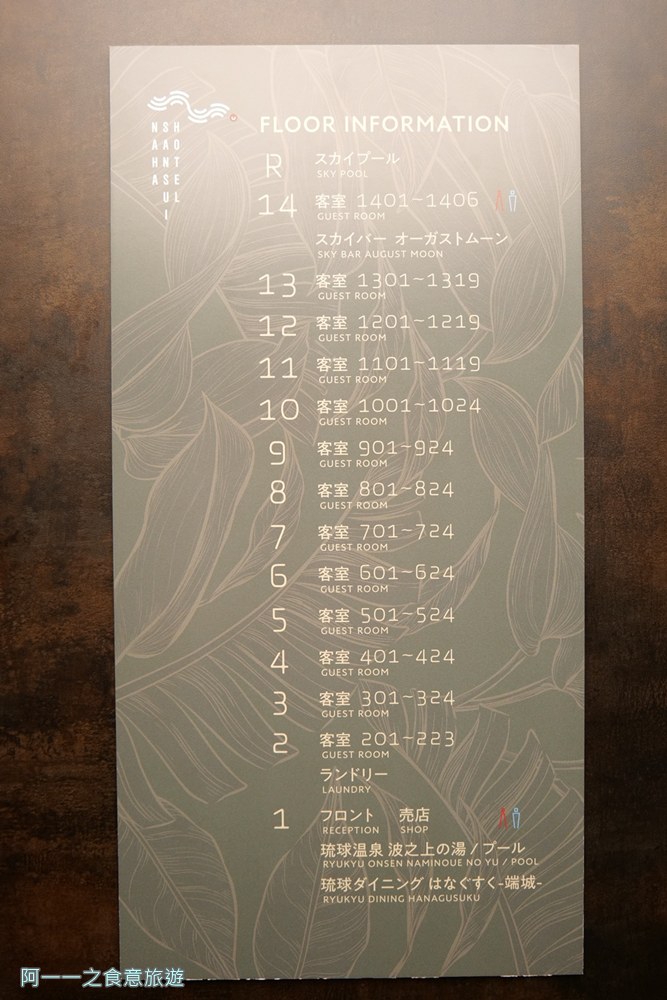 NAHA
SANSUI
HOTEL
FLOOR INFORMATION
R スカイプール
SKY POOL
14 客室 1401~1406
GUEST ROOM
スカイバー オーガストムーン
SKY BAR AUGUST MOON
13 客室 1301~1319
GUEST ROOM
12 客室 1201~1219
GUEST ROOM
11 客室 1101~1119
GUEST ROOM
10 客室 1001~1024
GUEST ROOM
9 客室 901~924
GUEST ROOM
8 客室 801~824
GUEST ROOM
7 客室 701~724
GUEST ROOM
6 客室 601~624
GUEST ROOM
5 客室 501~524
GUEST ROOM
4 客室 401~424
GUEST ROOM
3 客室 301~324
GUEST ROOM
2 客室 201~223
GUEST ROOM
ランドリー
LAUNDRY
1 フロント 売店
RECEPTION SHOP
琉球温泉 波之上の湯 / プール
RYUKYU ONSEN NAMINOUE NO YU / POOL
琉球ダイニング はなぐすく-端城-
RYUKYU DINING HANAGUSUKU
阿一一之食意旅遊